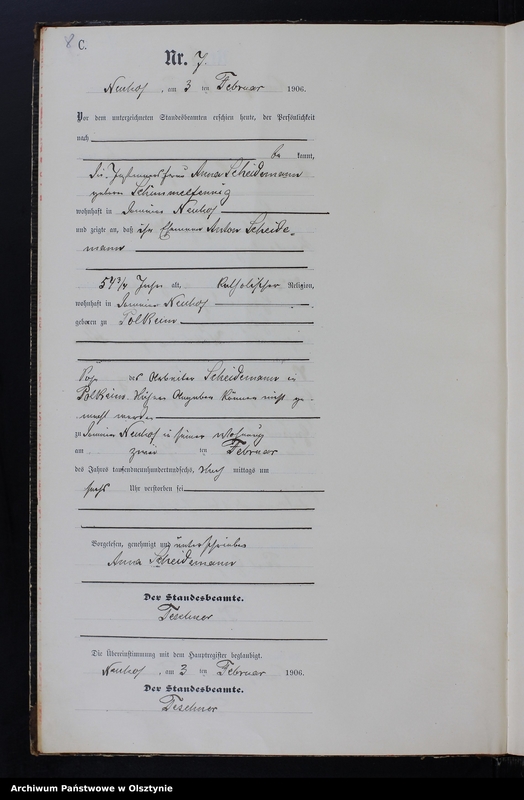 8 C.
Nr. 7.
Neuhof, am 3 ten Februar 1906.
Vor dem unterzeichneten Standesbeamten erschien heute, der Persönlichkeit
nach
be kannt,
die Instmannsfrau Anna Scheidemann
geborne Schimmelfennig
wohnhaft in Domaine Neuhof
und zeigte an, daß ihr Ehemann Anton Scheide-
mann
54 3/4 Jahre alt, katholischer Religion,
wohnhaft in Domaine Neuhof
geboren zu Polkeim
Sohn des Arbeiter Scheidemann in
Polkeim. Nähere Angaben können nicht ge-
macht werden
zu Domaine Neuhof in seiner Wohnung
am zwei ten Februar
des Jahres tausendneunhundertundsechs, Nach mittags um
sechs Uhr verstorben sei
Vorgelesen, genehmigt und unterschrieben
Anna Scheidemann
Der Standesbeamte.
Teschner
Die Übereinstimmung mit dem Hauptregister beglaubigt.
Neuhof, am 3 ten Februar 1906.
Der Standesbeamte.
Teschner
Archiwum Państwowe w Olsztynie